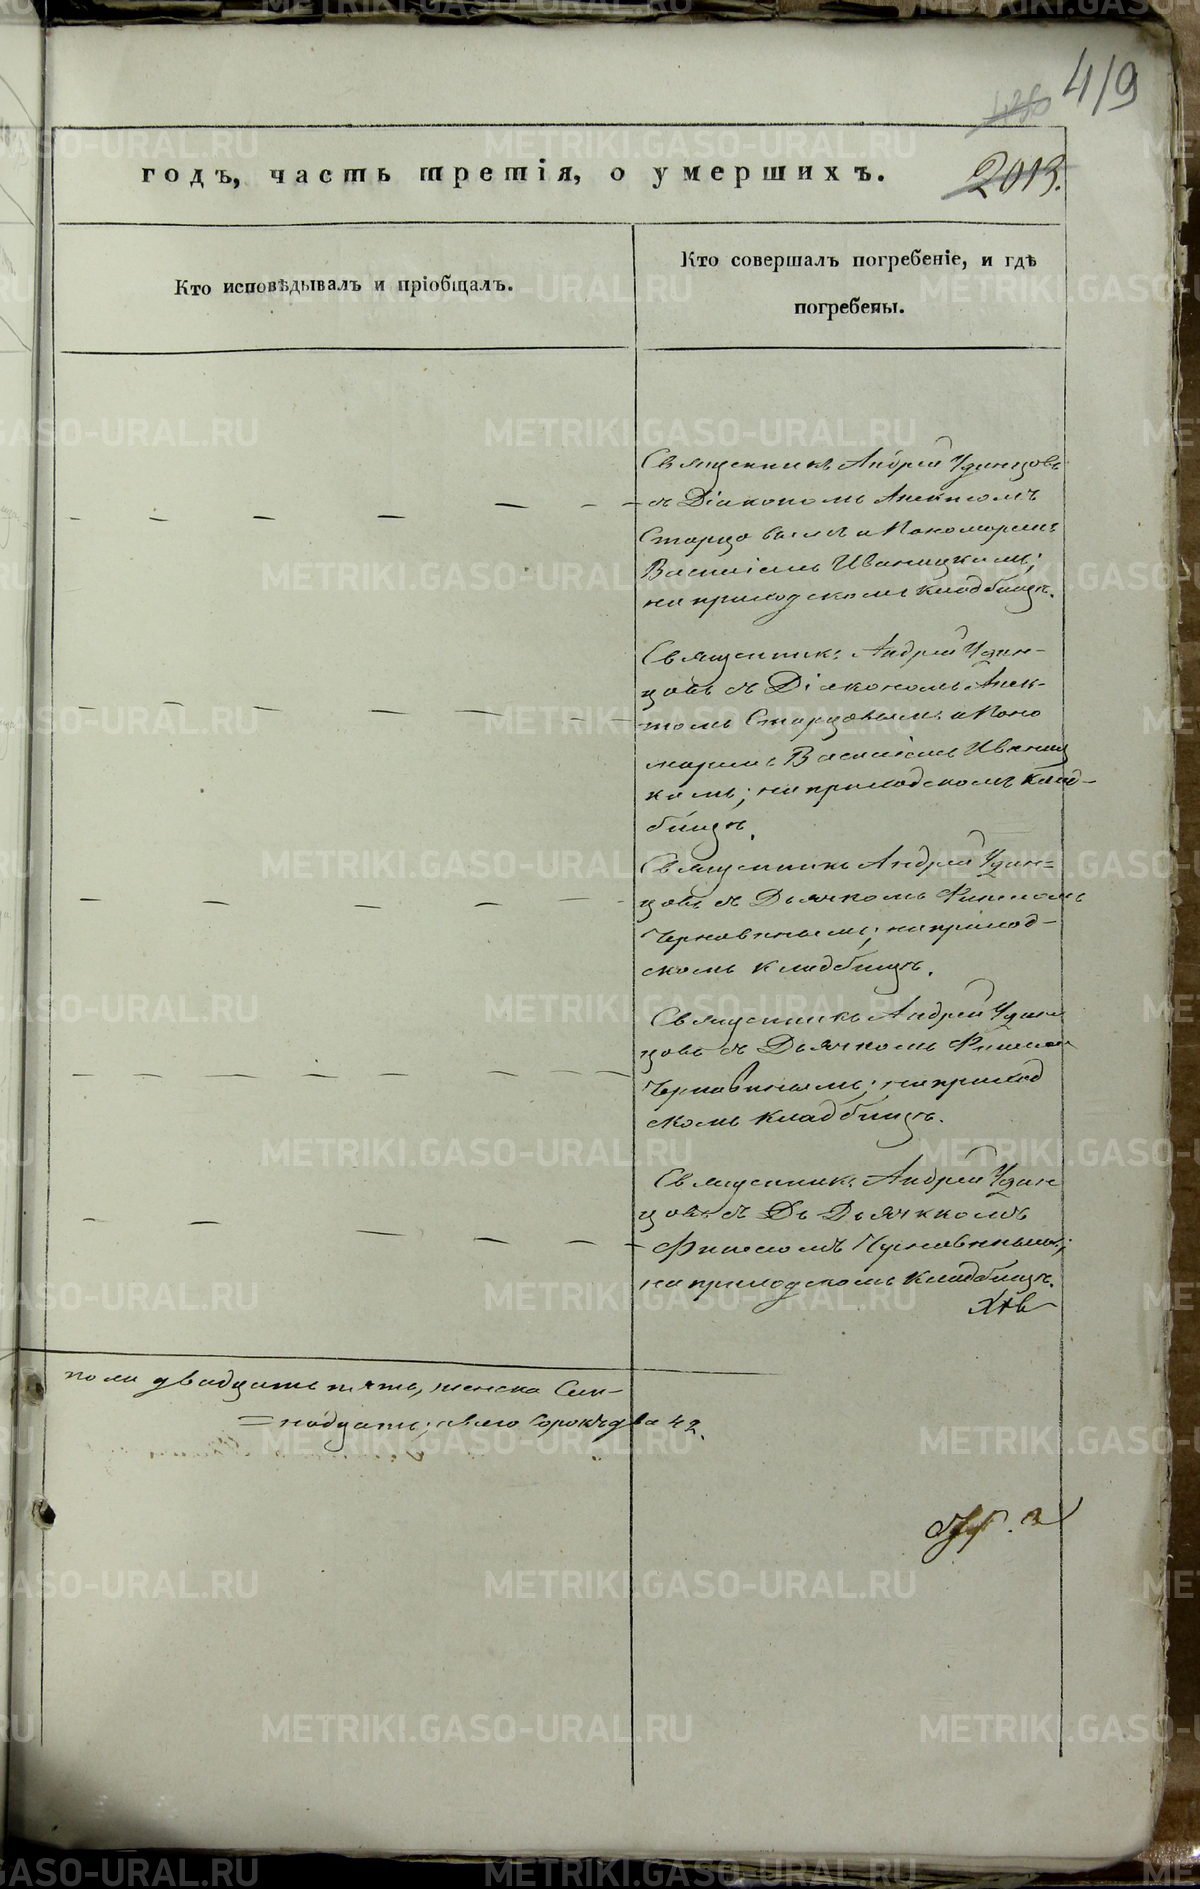 419
2013.
годъ, часть третія, о умершихъ.
Кто исповѣдывалъ и пріобщалъ.
Кто совершалъ погребеніе, и гдѣ
погребены.
Священникъ Андрей Удинцовъ
съ Діакономъ
Старцовымъ и Пономаремъ
Василіемъ Иваницкимъ;
на приходскомъ кладбищѣ.
Священникъ Андрей Удин-
цовъ съ Діакономъ
Старцовымъ и Поно
маремъ Василіемъ Иваниц
кимъ; на приходскомъ клад-
бищѣ.
Священникъ Андрей Удин=
цовъ съ Дьячкомъ
Чернавинымъ; на приход-
скомъ кладбищѣ.
Священникъ Андрей Удин
цовъ съ Дьячкомъ
Чернавинымъ; на приход
скомъ кладбищѣ.
Священникъ Андрей Удин
цовъ съ Дь Дьячкомъ
Чернавинымъ;
на приходскомъ кладбищѣ.
пола двадцать пять, женска Сем-
=надцать; всего сорокъ два 42.
METRIKI.GASO-URAL.RU